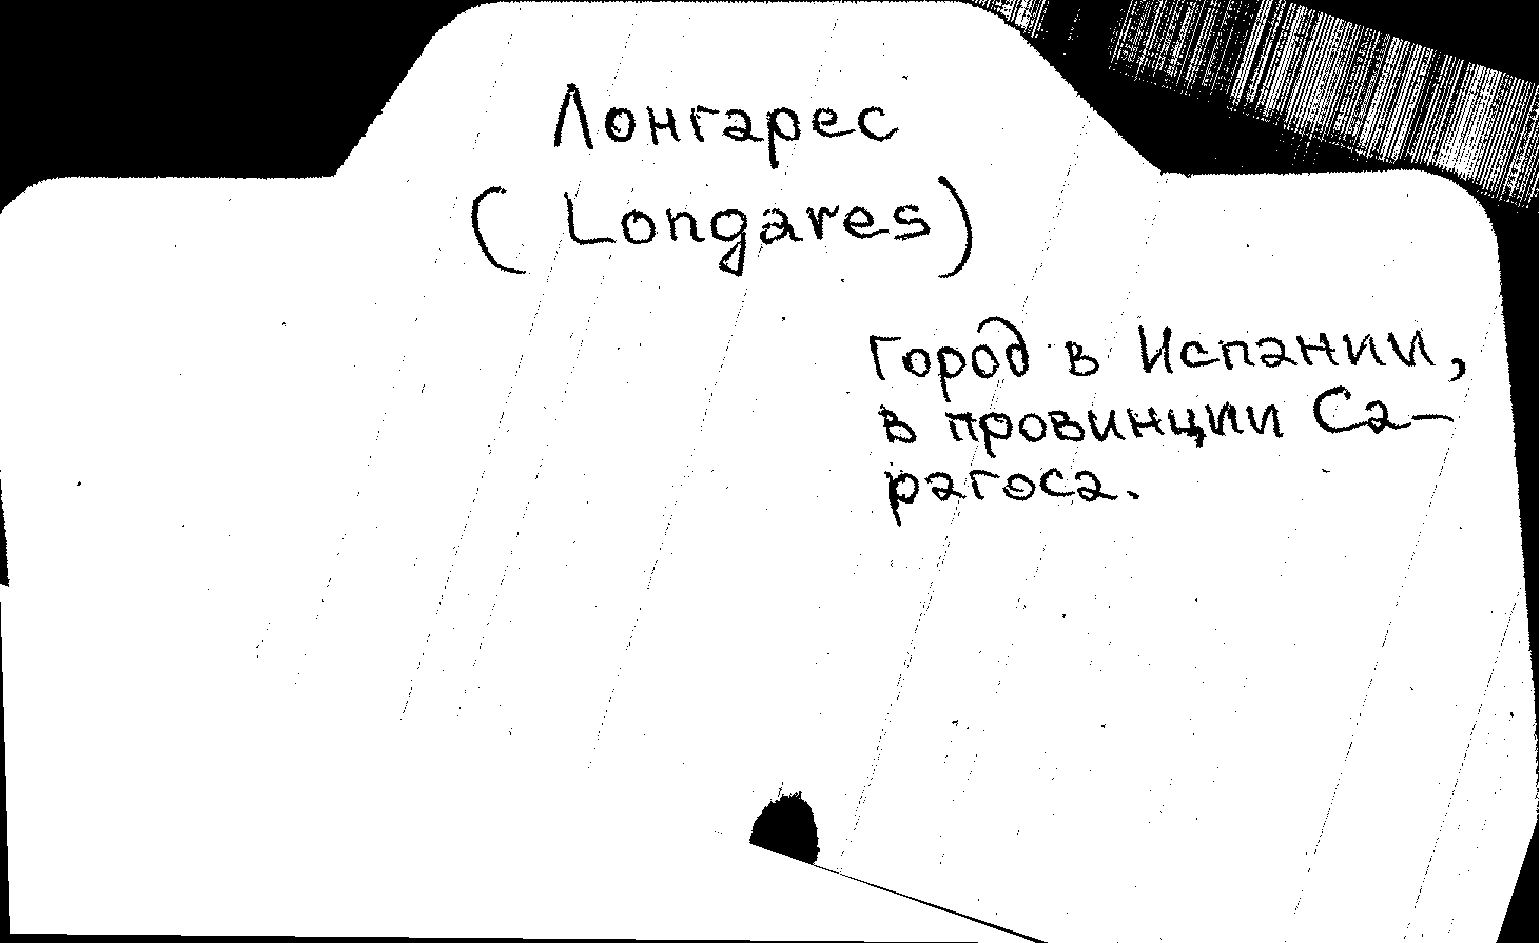 Лонгарес
(Longares)
Город в Испании,
в провинции Са-
рагоса.